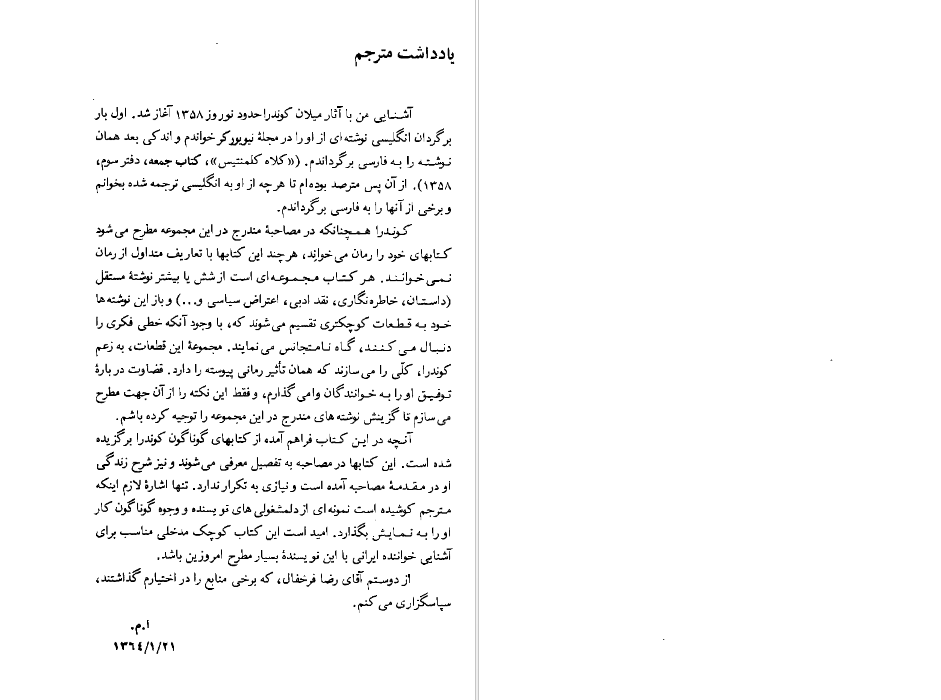 یادداشت مترجم
آشنایی من با آثار میلان کوندرا حدود نوروز ۱۳۵۸ آغاز شد. اول بار
برگردان انگلیسی نوشته‌ای از او را در مجلهٔ نیویورکر خواندم و اندکی بعد همان
نوشته را به فارسی برگرداندم. («کلاه کلمنتیس»، کتاب جمعه، دفتر سوم،
۱۳۵۸). از آن پس مترصد بوده‌ام تا هرچه از او به انگلیسی ترجمه شده بخوانم
و برخی از آنها را به فارسی برگرداندم.
کوندرا همچنانکه در مصاحبهٔ مندرج در این مجموعه مطرح می‌شود
کتابهای خود را رمان می‌خواند، هرچند این کتابها با تعاریف متداول از رمان
نمی‌خوانند. هر کتاب مجموعه‌ای است از شش یا بیشتر نوشتهٔ مستقل
(داستان، خاطره‌نگاری، نقد ادبی، اعتراض سیاسی و...) و باز این نوشته‌ها
خود به قطعات کوچکتری تقسیم می‌شوند که، با وجود آنکه خطی فکری را
دنبال می‌کنند، گاه نامتجانس می‌نمایند. مجموعهٔ این قطعات، به زعم
کوندرا، کلّی را می‌سازند که همان تأثیر رمانی پیوسته را دارد. قضاوت در بارهٔ
توفیق او را به خوانندگان وامی‌گذارم، و فقط این نکته را از آن جهت مطرح
می‌سازم تا گزینش نوشته‌های مندرج در این مجموعه را توجیه کرده باشم.
آنچه در این کتاب فراهم آمده از کتابهای گوناگون کوندرا برگزیده
شده است. این کتابها در مصاحبه به تفصیل معرفی می‌شوند و نیز شرح زندگی
او در مقدمهٔ مصاحبه آمده است و نیازی به تکرار ندارد. تنها اشارهٔ لازم اینکه
مترجم کوشیده است نمونه‌ای از دلمشغولی‌های نویسنده و وجوه گوناگون کار
او را به نمایش بگذارد. امید است این کتاب کوچک مدخلی مناسب برای
آشنایی خواننده ایرانی با این نویسندهٔ بسیار مطرح امروزین باشد.
از دوستم آقای رضا فرخفال، که برخی منابع را در اختیارم گذاشتند،
سپاسگزاری می‌کنم.
ا.م.
۱۳۶۴/۱/۲۱